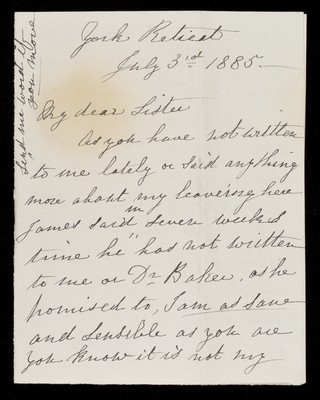 York Retreat
July 3rd 1885.
My dear Sister
As you have not written
to me lately or said anything
more about my leaving here
James said in seven weeks
time he has not written
to me or Dr Baker, as he
promised to, I am as sane
and sensible as you are
you know it is not my
Send me word if
you move